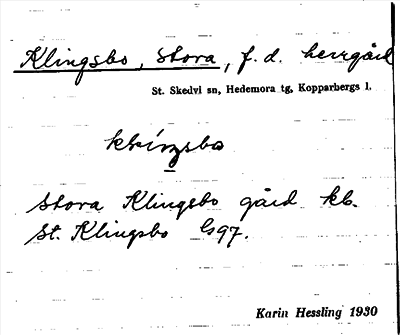 Klingsbo, Stora, f. d. herrgård
St. Skedvi sn, Hedemora tg, Kopparbergs l.
Stora Klingsbo gård kb.
St. Klingsbo G97.
Karin Hessling 1930